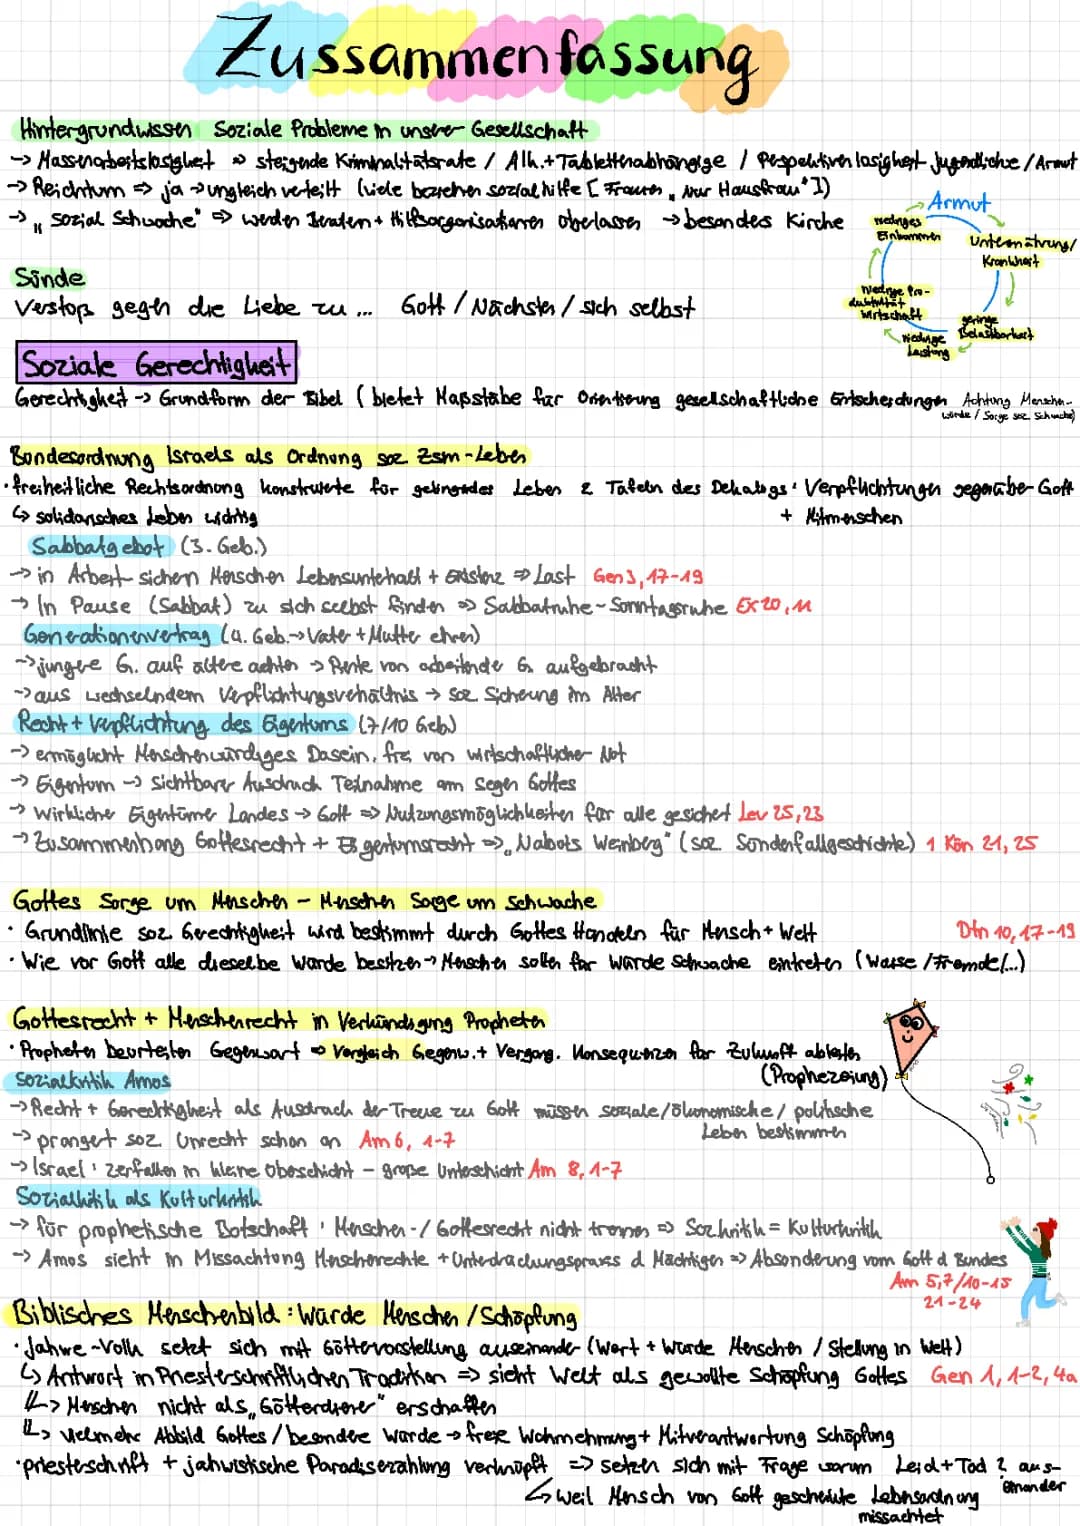 Zussammenfassung
Hintergrundwissen Soziale Probleme in unsrer Gesellschaft
-> Massenarbeitslosigkeit => steigende Kriminalitätsrate / Alk.+Tablettenabhängige / Perspektivenlosigkeit Jugendliche / Armut
-> Reichtum => ja -> ungleich verteilt (viele beziehen sozialhilfe [Frauen „Nur Hausfrau"])
-> „sozial Schwache" => werden Beraten + Hilfsorganisationen überlassen -> besonders Kirche
Armut
Unterernährung/
Krankheit
geringe
Belastbarkeit
niedrige
Leistung
Niedrige Pro-
duktivität
Wirtschaft
niedriges
Einkommen
Sünde
Verstoß gegen die Liebe zu ... Gott / Nächsten / sich selbst
Soziale Gerechtigkeit
Gerechtigkeit -> Grundform der Bibel (bietet Maßstäbe für Orientierung gesellschaftliche Entscheidungen Achtung Menschen-
würde / Sorge soz. Schwache)
Bundesordnung Israels als Ordnung soz Zsm-Leben
· freiheitliche Rechtsordnung konstruierte für gelingendes Leben 2 Tafeln des Dekalogs: Verpflichtungen gegenüber Gott
+ Mitmenschen
↳ solidarisches Leben wichtig
Sabbatgebot (3. Geb.)
-> in Arbeit sichern Menschen Lebensunterhalt + Existenz => Last Gen 3, 17-19
-> In Pause (Sabbat) zu sich selbst finden => Sabbatruhe ~ Sonntagsruhe Ex 20, 11
Generationenvertrag (4. Geb. -> Vater + Mutter ehren)
-> jüngere G. auf ältere achten -> Rente von arbeitende G. aufgebracht
-> aus wechselndem Verpflichtungsverhältnis -> soz Sicherung im Alter
Recht + Verpflichtung des Eigentums (7/10 Geb.)
-> ermöglicht Menschenwürdiges Dasein, frei von wirtschaftlicher Not
-> Eigentum -> Sichtbarer Ausdruck Teilnahme am Segen Gottes
-> Wirkliche Eigentümer Landes -> Gott => Nutzungsmöglichkeiten für alle gesichert Lev 25, 23
-> Zusammenhang Gottesrecht + Eigentumsrecht => „Nabots Weinberg" (soz. Sündenfallgeschichte) 1 Kön 21, 25
Gottes Sorge um Menschen - Menschen Sorge um Schwache
· Grundlinie soz Gerechtigkeit wird bestimmt durch Gottes Handeln für Mensch + Welt Dtn 10, 17-19
· Wie vor Gott alle dieselbe Würde besitzen -> Menschen sollen für Würde Schwache eintreten (Waise / Fremde/...)
Gottesrecht + Menschenrecht in Verkündigung Propheten
· Propheten beurteilen Gegenwart => Vergleich Gegenw. + Vergang. Konsequenzen für Zukunft ableiten
(Prophezeiung)
Sozialkritik Amos
-> Recht + Gerechtigkeit als Ausdruck der Treue zu Gott müssen soziale/ökonomische/ politische
Leben bestimmen
-> prangert soz. Unrecht schon an Am 6, 1-7
-> Israel: zerfallen in kleine Oberschicht - große Unterschicht Am 8, 1-7
Sozialkritik als Kulturkritik
-> für prophetische Botschaft: Menschen-/Gottesrecht nicht trennen => Sozkritik = Kulturkritik
-> Amos sieht in Missachtung Menschenrechte + Unterdrückungspraxis d Mächtigen => Absonderung vom Gott d Bundes
Am 5, 7/10-15
21-24
Biblisches Menschenbild: Würde Menschen / Schöpfung
· Jahwe-Volk setzt sich mit Göttervorstellung auseinander (Wert + Würde Menschen / Stellung in Welt)
↳ Antwort in Priesterschriftlichen Tradition => sieht Welt als gewollte Schöpfung Gottes Gen 1, 1-2, 4a
↳> Menschen nicht als „Götterdiener" erschaffen
↳> Vielmehr Abbild Gottes / besondere Würde -> freie Wahrnehmung + Mitverantwortung Schöpfung
· priesterschrift + jahwistische Paradiserzählung verknüpft => setzen sich mit Frage warum Leid + Tod ? aus-
einander
↳ weil Mensch von Gott geschenkte Lebensordnung
missachtet